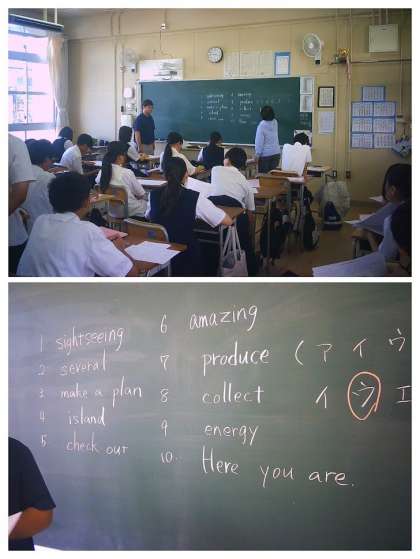 1 sightseeing
2 several
3 make a plan
4 island
5 check out
6 amazing
7 produce (ア イ ウ
8 collect イ ウ エ
9 energy
10. Here you are.